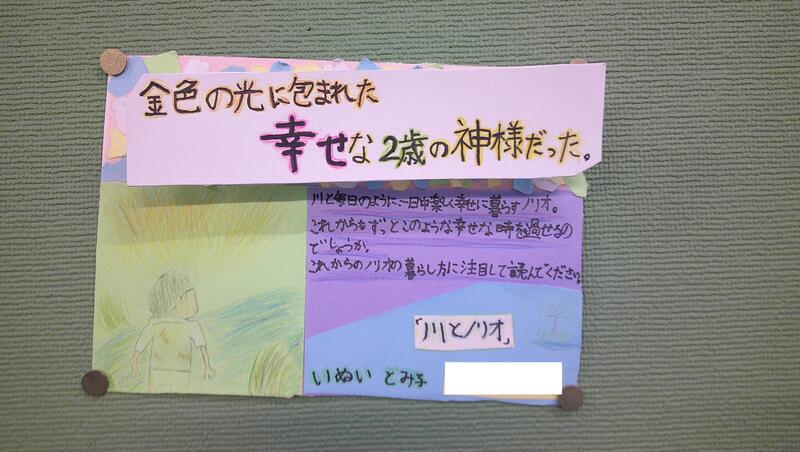 金色の光に包まれた
幸せな2歳の神様だった。
川と毎日のように、一日中楽しく幸せに暮らすノリオ。
これからもずっとこのような幸せな時を過せるの
でしょうか。
これからのノリオの暮らし方に注目して読んでください。
「川とノリオ」
いぬい とみ子